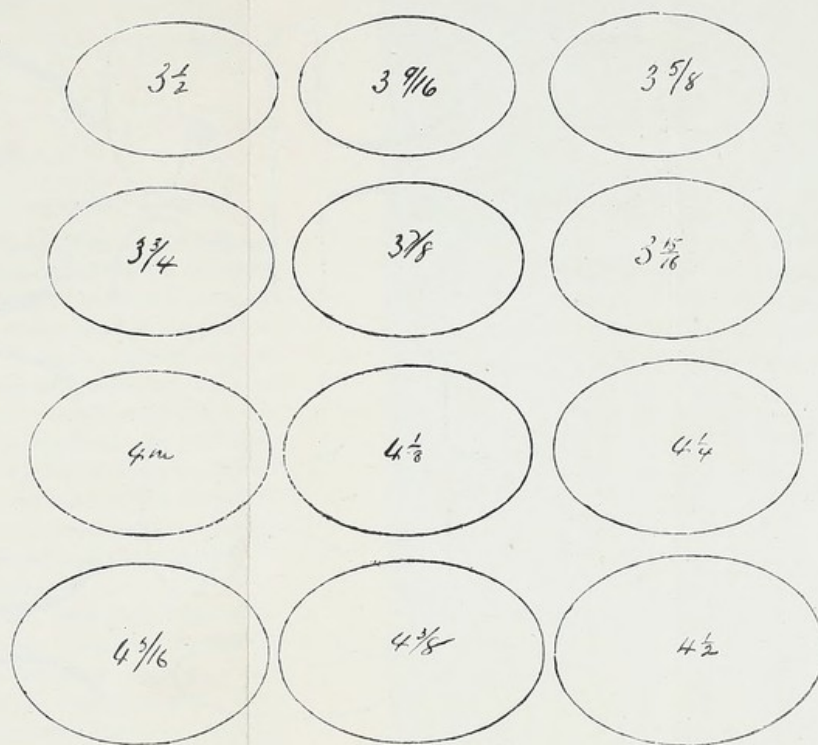 3 1/2 3 9/16 3 5/8
3 3/4 3 7/8 3 15/16
4 in 4 1/8 4 1/4
4 5/16 4 3/8 4 1/2